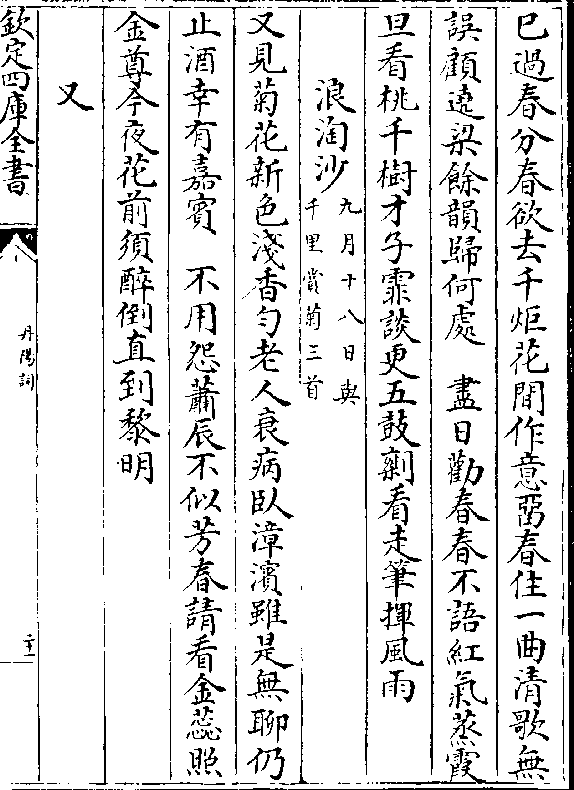 已過春分春欲去千炬花間作意畱春住一曲清歌無
誤顧遶梁餘韻歸何處　盡日勸春春不語紅氣蒸霞
旦看桃千樹才子霏談更五鼓剩看走筆揮風雨
浪淘沙
九月十八日與
千里賞菊三首
又見菊花新色淺香勻老人衰病臥漳濱雖是無聊仍
止酒幸有嘉賓　不用怨蕭辰不似芳春請看金蕊照
金尊今夜花前須醉倒直到黎明
又
欽定四庫全書
丹陽詞
二十一